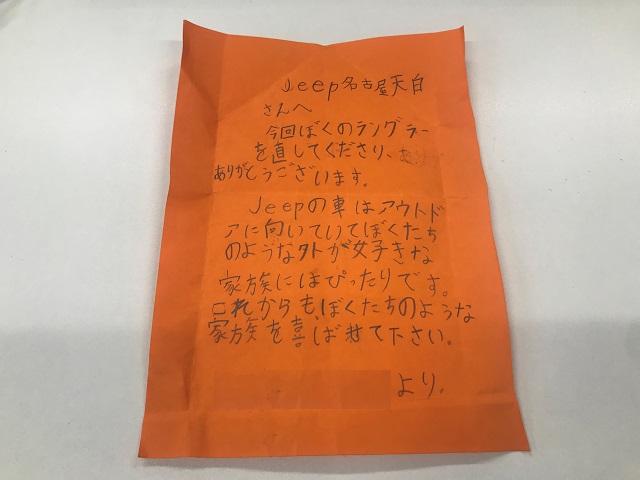 Jeep名古屋天白
さんへ
今回ぼくのラングラー
を直してくださり、
ありがとうございます。
Jeepの車はアウトド
アに向いていてぼくたち
のような外が好きな
家族にはぴったりです。
これからも、ぼくたちのような
家族を喜ばせて下さい。
より。